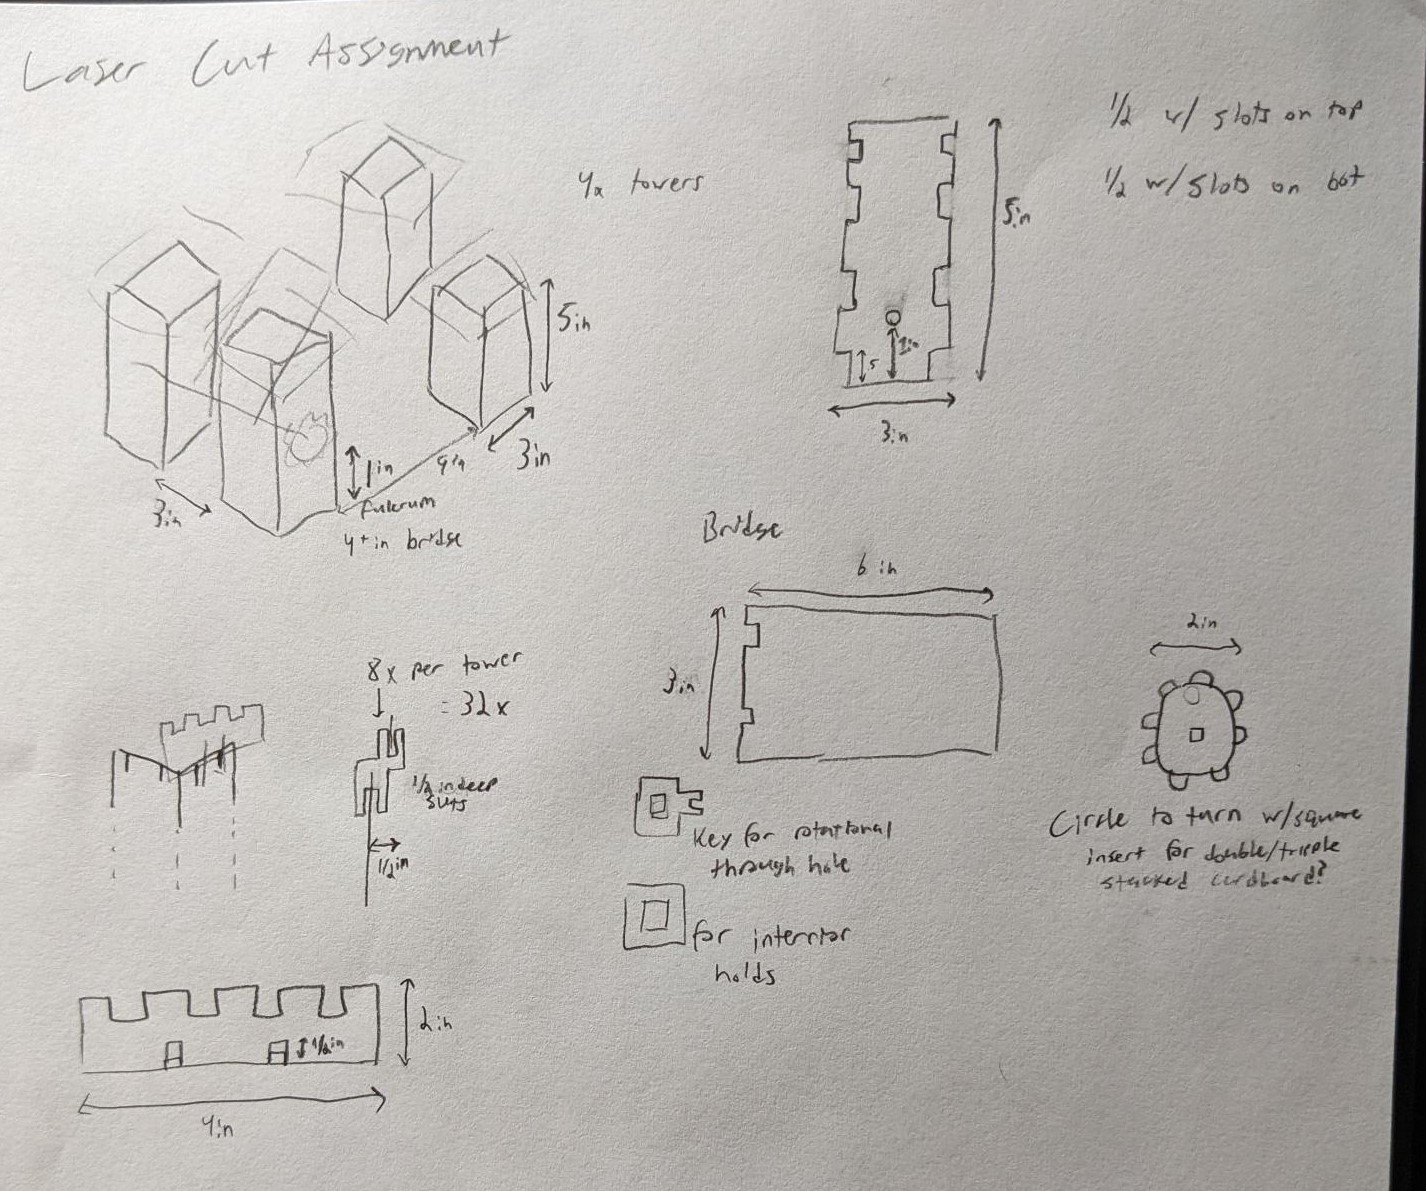 Laser Cut Assignment
4x towers
5in
3in
1in
9in
3in
fulcrum
4+in bridge
5in
1in
3in
1/2 w/ slots on top
1/2 w/ slots on bot
8x per tower
= 32x
1/2 in deep
1/2in
2in
1/2in
4in
Bridge
6 in
3in
Key for rotational
through hole
for interrior
holds
2in
Circle to turn w/square
insert for double/tripple
stacked cardboard?